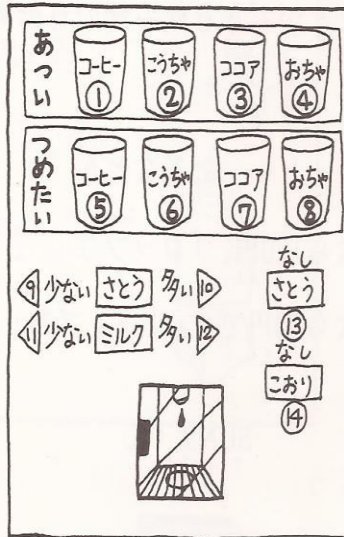 あつい
コーヒー ① こうちゃ ② ココア ③ おちゃ ④
つめたい
コーヒー ⑤ こうちゃ ⑥ ココア ⑦ おちゃ ⑧
9 少ない さとう 多い 10
11 少ない ミルク 多い 12
なし
さとう
⑬
なし
こおり
⑭